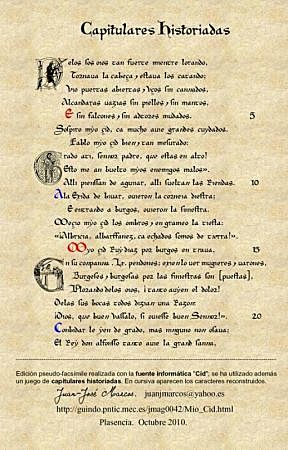 Capitulares Historiadas
De los sos oios tan fuerte mientre lorando,
Tornaua la cabeça y estaua los catando:
Vio puertas abiertas y vços sin cannados,
Alcandaras uazias sin pielles y sin mantos,
E sin falcones y sin adtores mudados. 5
Sospiro myo çid, ca mucho auie grandes cuydados.
Fablo myo çid bien y tan mesurado:
Grado a ti, sennor padre, que estas en alto!
Esto me an buelto myos enemigos malos».
Alli pienssan de aguijar, alli sueltan las Riendas. 10
A la Exida de biuar, ouieron la corneia diestra;
E entrando a burgos, ouieron la siniestra.
Meçio myo çid los ombros y en grameo la tiesta:
«Albricia, albarffanez, ca echados somos de tierra!».
Myo çid Ruy diaz por burgos en traua, 15
En su compannia .Lx. pendones; exien lo uer mugieres y uarones,
Burgeses y burgesas por las finiestras son [puestas],
Plorando delos oios, ¡tanto auyen el dolor!
Delas sus bocas todos dizian una Razon:
¡Dios, que buen vassalo, si ouiesse buen Sennor!» 20
Conbidar le yen de grado, mas ninguno non osaua;
El Rey don alfonsso tanto auie la grand sanna,
Edición pseudo-facsímile realizada con la fuente informática "Cid"; se ha utilizado además
un juego de capitulares historiadas. En cursiva aparecen los caracteres reconstruidos.
Juan-José Marcos. juanjmarcos@yahoo.es
http://guindo.pntic.mec.es/jmag0042/Mio_Cid.html
Plasencia. Octubre 2010.